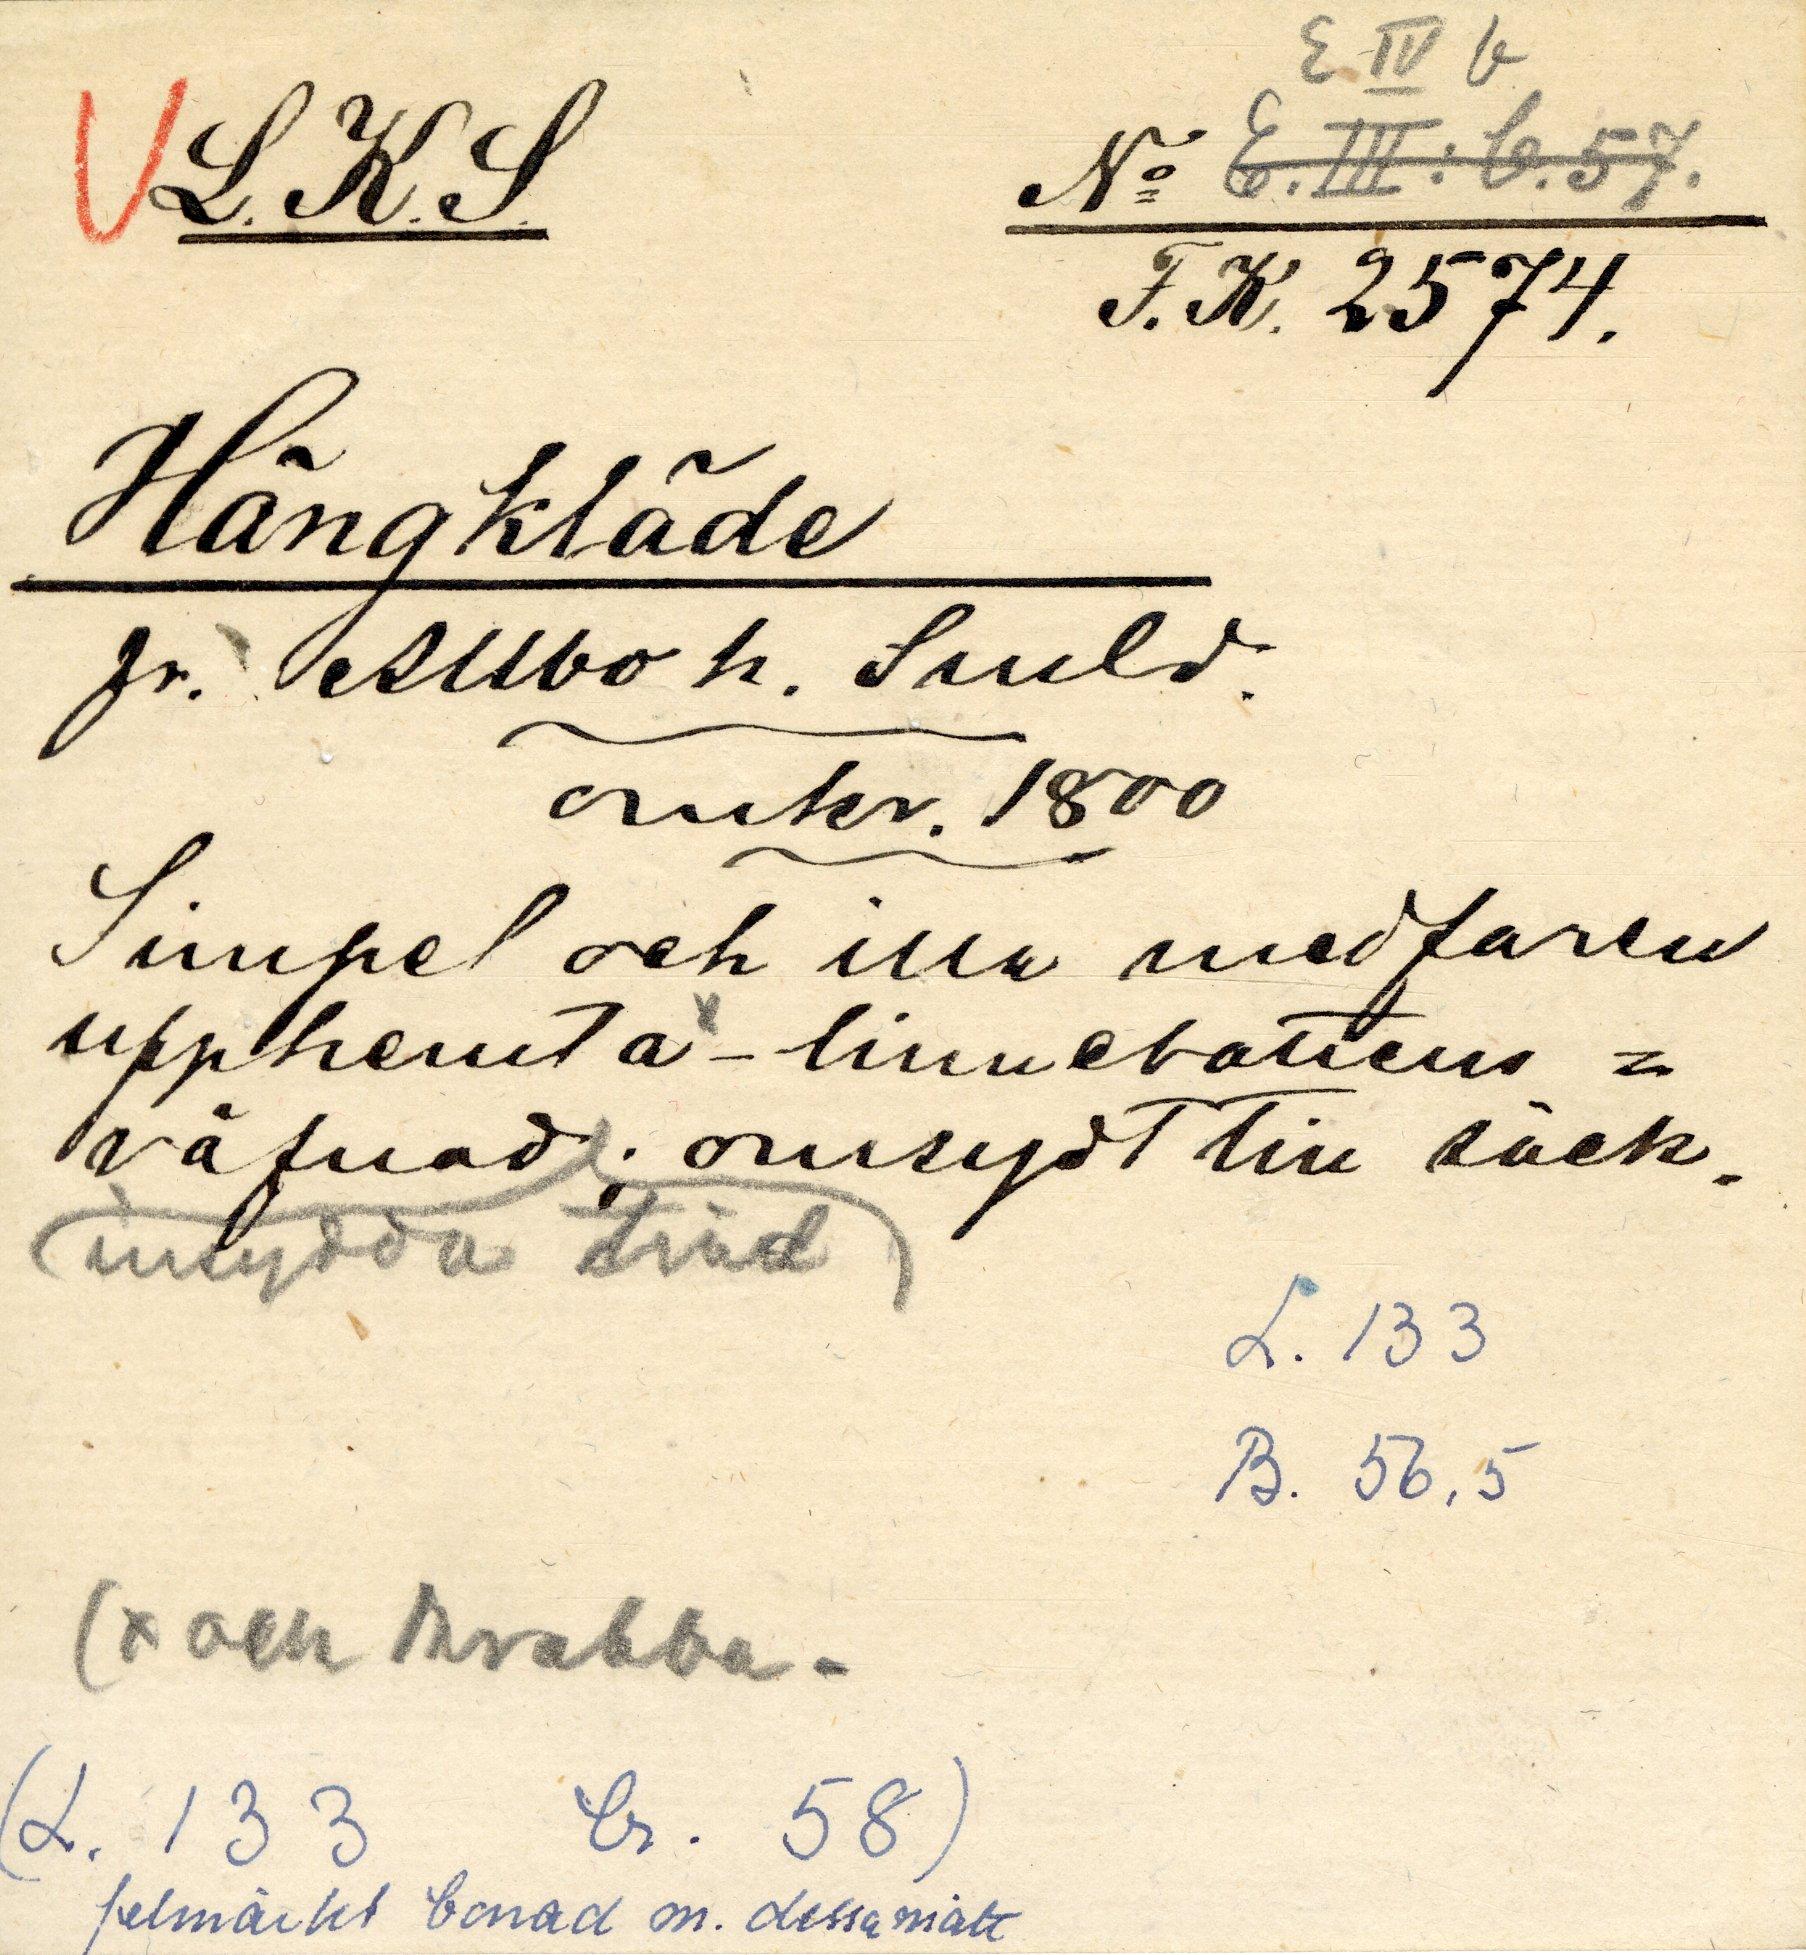 E IV b
L. K. S.
No E. III: b. 57.
F. K. 2574.
Hängkläde
fr. Allbo h. Smld.
omkr. 1800
Simpel och illa medfaren
upphemta x - linnebottens =
väfnad; omsydt till säck.
insydda träd
L. 133
B. 56,5
(x och krabba -
(L. 133 br. 58)
felmärkt bonad m. dessa mått